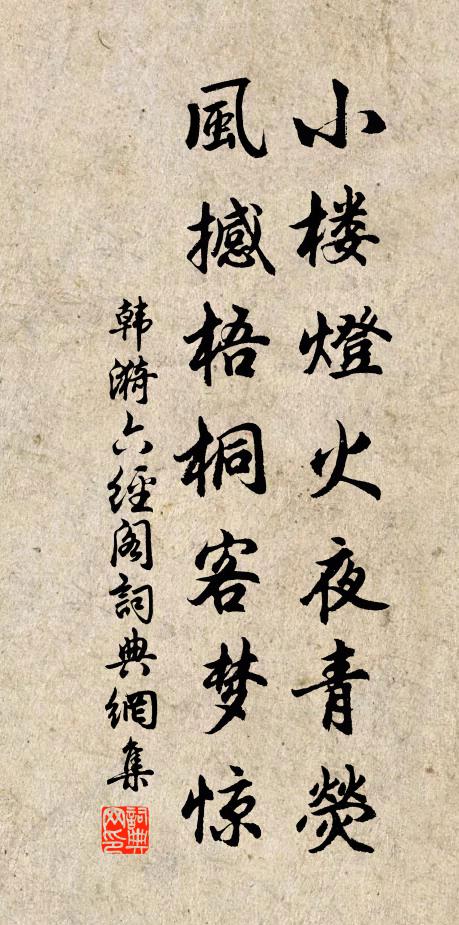 小楼燈火夜青熒
風撼梧桐客梦惊
韩漪六經阁詞典網集
詞典网印